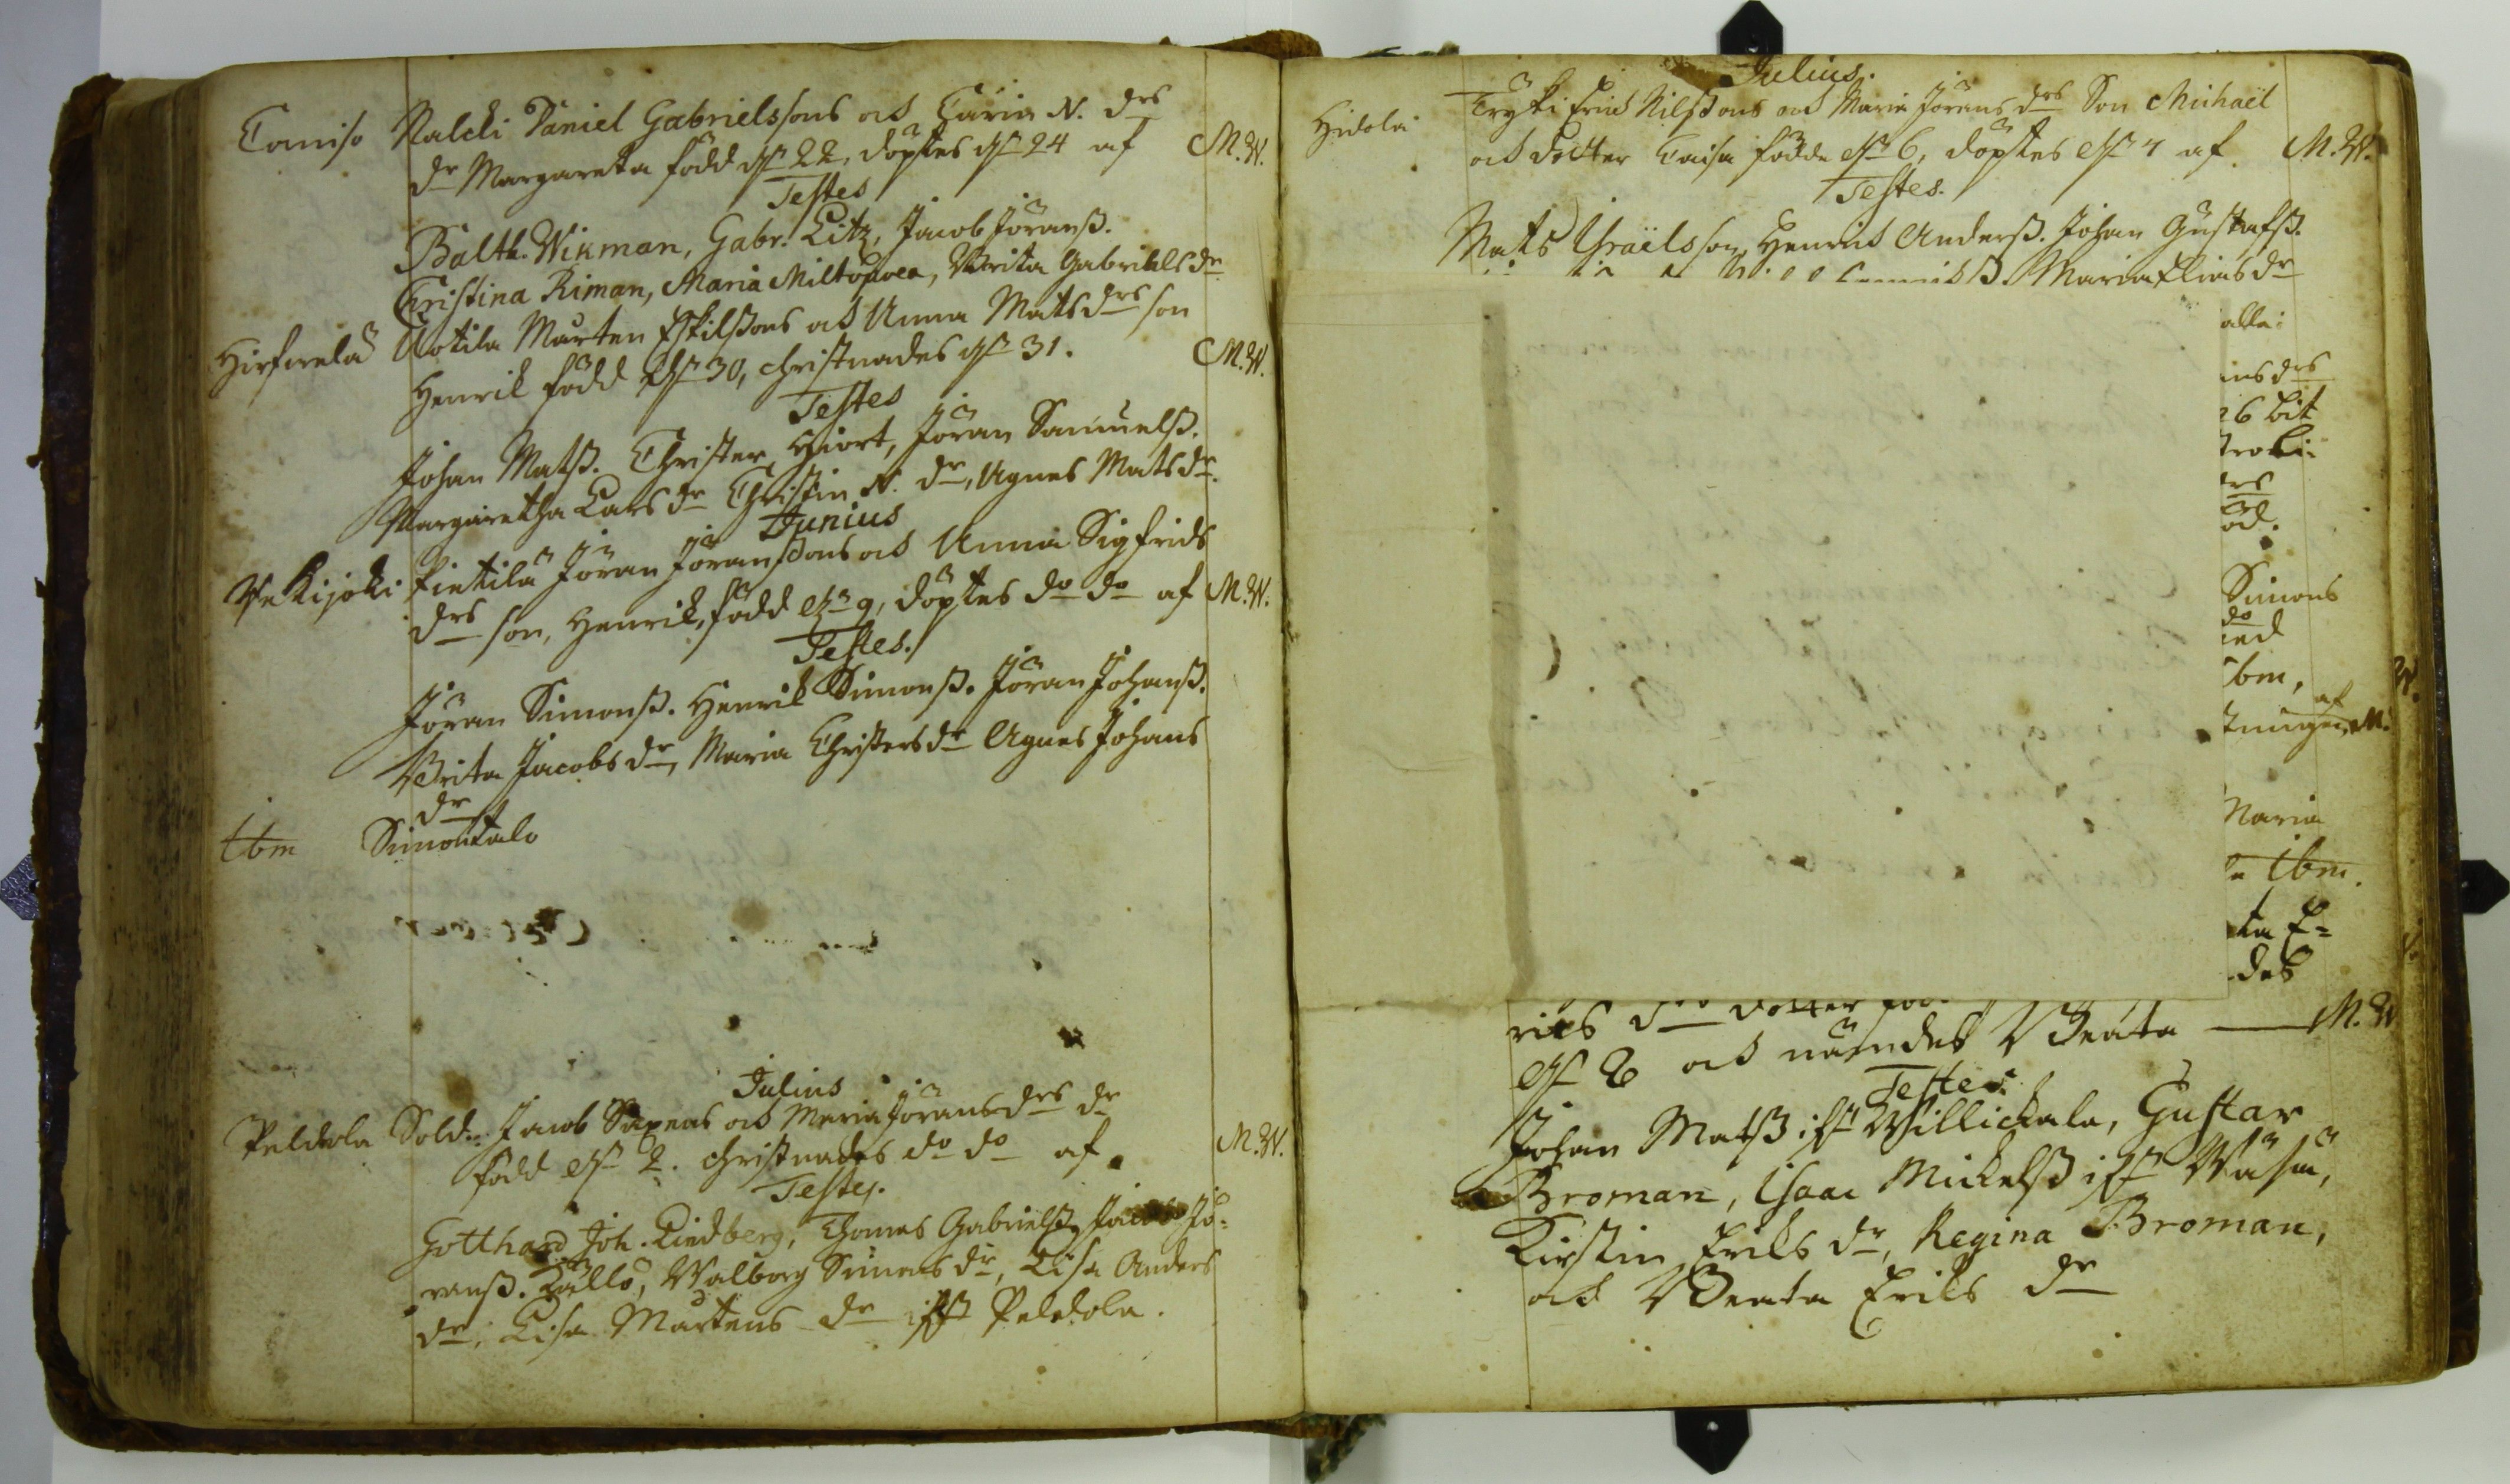 Tamiso Nalcki Daniel Gabrielssons och Carin N. drs
dr Margareta född d. 22, döptes d. 24 af M.W.
Testes
Balth. Wikman, Gabr. Litz, Jacob Jöranß.
Christina Riman, Maria Miltopoea, Brita Gabriels dr
Hirfwelä Antila Mårten Eskilßons och Anna Mats drs son
Henrik född d. 30, christnades d. 31. M.W.
Testes
Johan Matß. Christer Hiort, Jöran Samuelß.
Margaretha Lars dr Christin N. dr, Agnes Mats dr.
Junius
Wekijoki Pietilä Jöran Jöranßons och Anna Sigfrids
drs son, Henrik, född d. 9, döptes do do af M.W.
Testes.
Jöran Simonß. Henrik Simonß. Jöran Johanß.
Brita Jacobs dr, Maria Christers dr Agnes Johans
dr
Ibm Simontalo
Julius
Peldola Sold. Jacob Saxens och Maria Jörans drs dr
född d. 2. christnades do do af M.W.
Testes.
Gotthard Joh. Lindberg, Thomas Gabrielß, Jacob Jö-
ranß. Källo, Walborg Simons dr, Lisa Anders
dr, Lisa Mårtens dr ifr Peldola.
Julius.
Hidola Tryki Erich Nilßons och Maria Jörans drs Son Michaël
och dotter Caisa födde d. 6, döptes d. 7 af M.W.
Testes.
Mats Israëlsson, Henrich Anderß. Johan Gustafß.
Maria Elias dr
alla:
ins drs
26 bit
troki:
drs
öd.
Simons
do
ned
Ibm,
af
M. W.
Maria
Ibm.
ta E=
des
rics drs dotter
d. 8 och nämdes Beata — M.W
Testes.
Johan Matß ifr Willickala, Gustav
Broman, Isaac Mickelß ifr Wäsmä,
Kirstin Eriks dr, Regina Broman,
och Beata Eriks dr